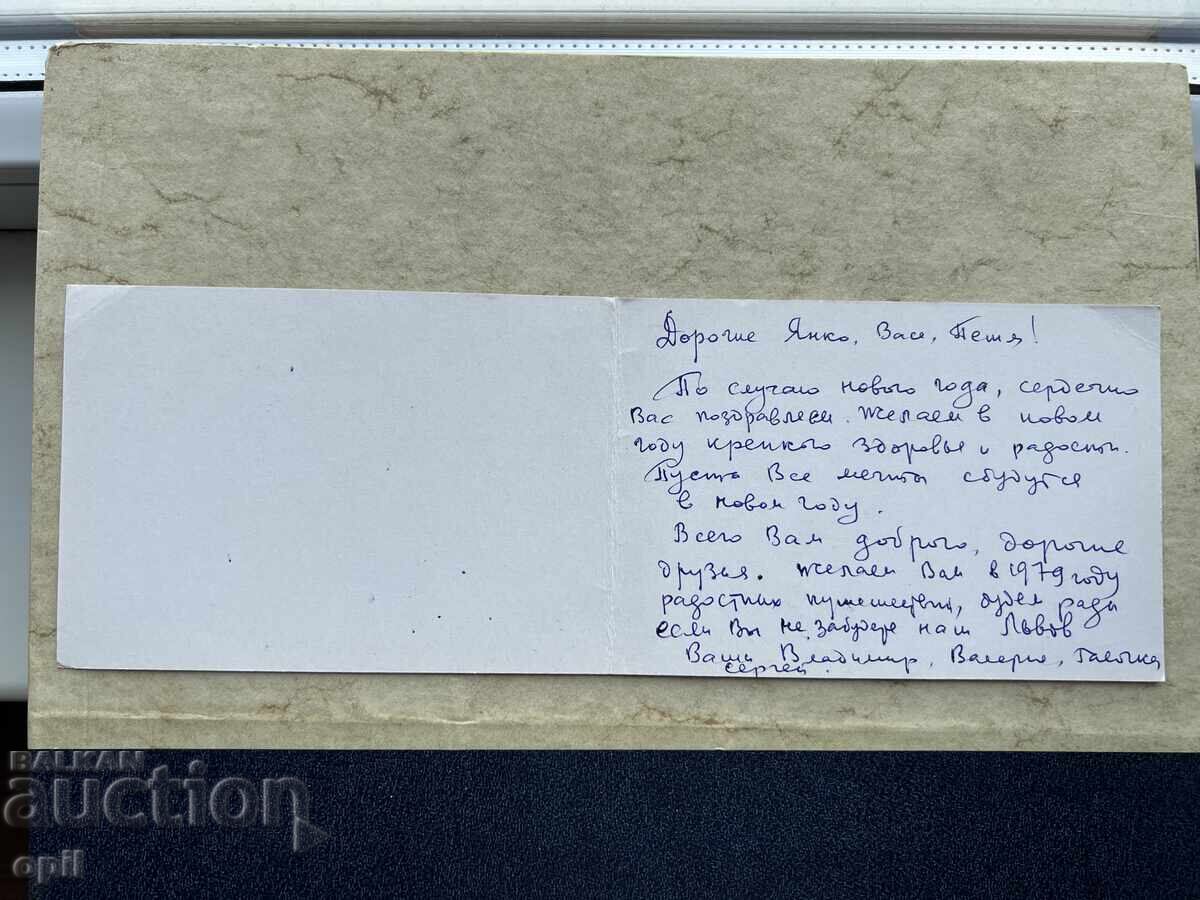 Дорогие Янко, Васе, Петя!
По случаю нового года, сердечно
Вас поздравляем. Желаем в новом
году крепкого здоровья и радости.
Пусть Все мечты сбудутся
в новом году.
Всего Вам доброго, дорогие
друзья. Желаем Вам в 1979 году
радостных путешествий, будем рады
если Вы не забудете наш Львов
Ваши Владимир, Валерия,
Сергей.
BALKAN
auction
opil